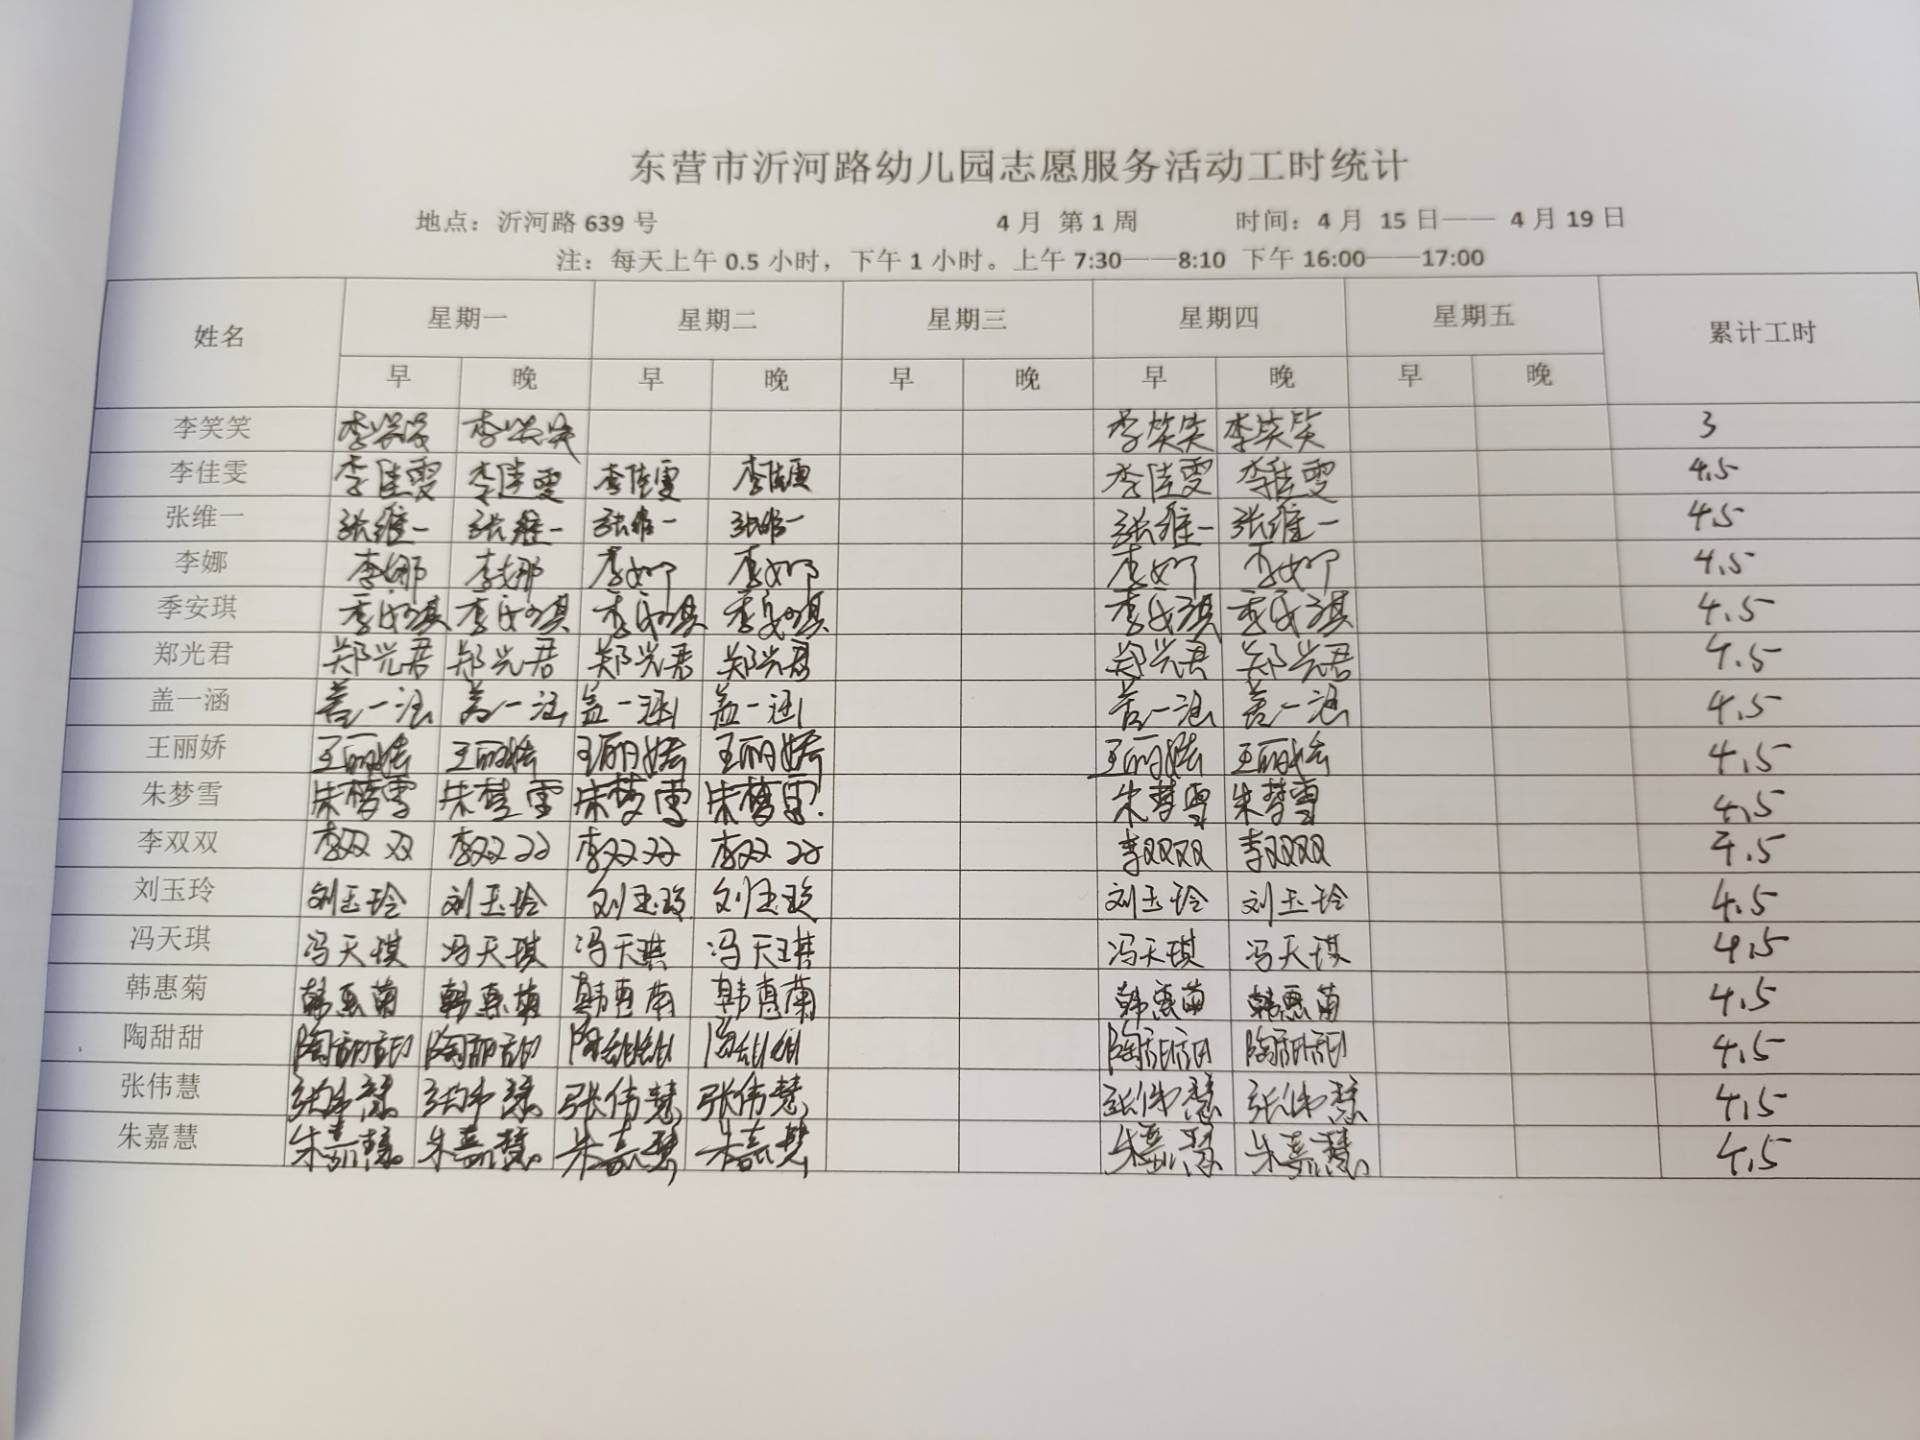 东营市沂河路幼儿园志愿服务活动工时统计
地点：沂河路 639 号 4 月 第 1 周 时间：4 月 15 日—— 4 月 19 日
注：每天上午 0.5 小时，下午 1 小时。上午 7:30——8:10 下午 16:00——17:00
姓名 星期一 星期二 星期三 星期四 星期五 累计工时
早 晚 早 晚 早 晚 早 晚 早 晚
李笑笑 李笑笑 李笑笑 李笑笑 李笑笑 3
李佳雯 李佳雯 李佳雯 李佳雯 李佳雯 李佳雯 李佳雯 4.5
张维一 张维一 张维一 张维一 张维一 张维一 张维一 4.5
李娜 李娜 李娜 李娜 李娜 李娜 李娜 4.5
季安琪 季安琪 季安琪 季安琪 季安琪 季安琪 季安琪 4.5
郑光君 郑光君 郑光君 郑光君 郑光君 郑光君 郑光君 4.5
盖一涵 盖一涵 盖一涵 盖一涵 盖一涵 盖一涵 盖一涵 4.5
王丽娇 王丽娇 王丽娇 王丽娇 王丽娇 王丽娇 王丽娇 4.5
朱梦雪 朱梦雪 朱梦雪 朱梦雪 朱梦雪 朱梦雪 朱梦雪 4.5
李双双 李双双 李双双 李双双 李双双 李双双 李双双 4.5
刘玉玲 刘玉玲 刘玉玲 刘玉玲 刘玉玲 刘玉玲 刘玉玲 4.5
冯天琪 冯天琪 冯天琪 冯天琪 冯天琪 冯天琪 冯天琪 4.5
韩惠菊 韩惠菊 韩惠菊 韩惠菊 韩惠菊 韩惠菊 韩惠菊 4.5
陶甜甜 陶甜甜 陶甜甜 陶甜甜 陶甜甜 陶甜甜 陶甜甜 4.5
张伟慧 张伟慧 张伟慧 张伟慧 张伟慧 张伟慧 张伟慧 4.5
朱嘉慧 朱嘉慧 朱嘉慧 朱嘉慧 朱嘉慧 朱嘉慧 朱嘉慧 4.5